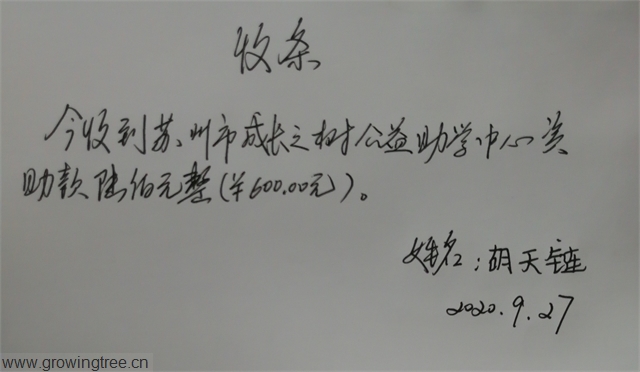 收条
今收到苏州市成长之树公益助学中心资
助款陆佰元整(￥600.00元)。
姓名:胡天链
2020.9.27
www.growingtree.cn